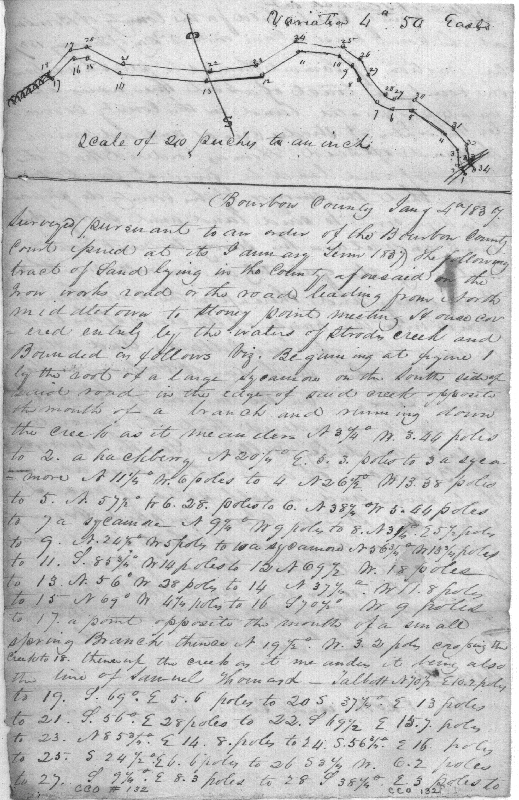 Variation 4° 50 East
Scale of 20 poles to an inch
Bourbon County Jany 4th 1837
Surveyed pursuant to an order of the Bourbon County
Court issued at its January Term 1837 the following
tract of Land lying in the County aforesaid on the
Iron works road or the road leading from North
middletown to Stoney point meeting House cov
-ered entirely by the waters of Strodes creek and
Bounded as follows Viz. Beginning at figure 1
by the root of a large sycamore on the South side of
said road in the edge of said creek opposite
the mouth of a branch and running down
the creek as it meanders N 3¾° W. 3.44 poles
to 2. a hackberry N 20¼° E. 3.3. poles to 3 a syca-
-more N 11¼° W. 6 poles to 4 N 26½° W 13.38 poles
to 5. N. 57½° W 6.28. poles to 6. N 38½° W 5.44 poles
to 7 a sycamore N 9½° W 9 poles to 8. N 31½° E 5½ poles
to 9. N. 24½° W 5 poles to 10 a sycamore N 56¾° W 13¾ poles
to 11. S. 85¾° W 14 poles to 12 N 69½ W. 18 poles
to 13 N. 56° W. 28 poles to 14 N 37½° W 11.8 poles
to 15 N 69° W 4¼ poles to 16 S 70¾° W 9 poles
to 17. a point opposite the mouth of a small
spring Branch thence N 19½° W. 3.2 poles crossing the
creek to 18. thence up the creek as it meanders it being also
the line of Samuel Talbott N 70¾ E 10.2 poles
to 19. S. 69° E 5.6 poles to 20 S. 37½° E 13 poles
to 21. S. 56° E 28 poles to 22. S 69½ E 15.7. poles
to 23. N 85¾° E 14.8. poles to 24. S. 56¾° E 16 poles
to 25. S 24½° E 6.6 poles to 26 S 3½ W. 6.2 poles
to 27. S 9½° E 8.3 poles to 28 S 38½° E 3 poles to
CCO # 132 CCO 132